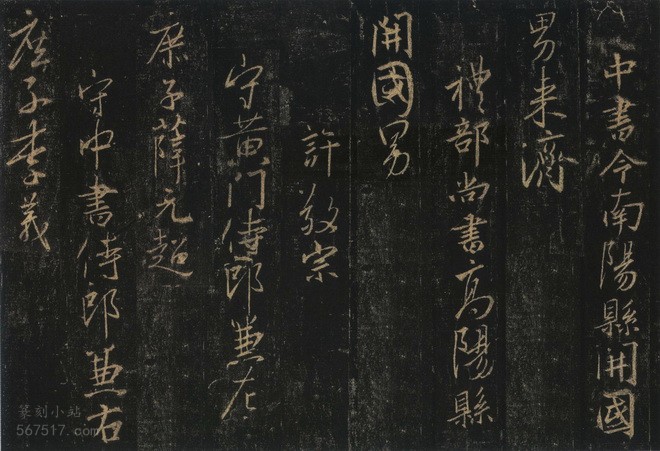 中書令南陽縣開國
男来濟
禮部尚書高陽縣
開國男
許敬宗
守黄門侍郎兼左
庶子薛元超
守中書侍郎兼右
庶子李義
篆刻小站
567517.com